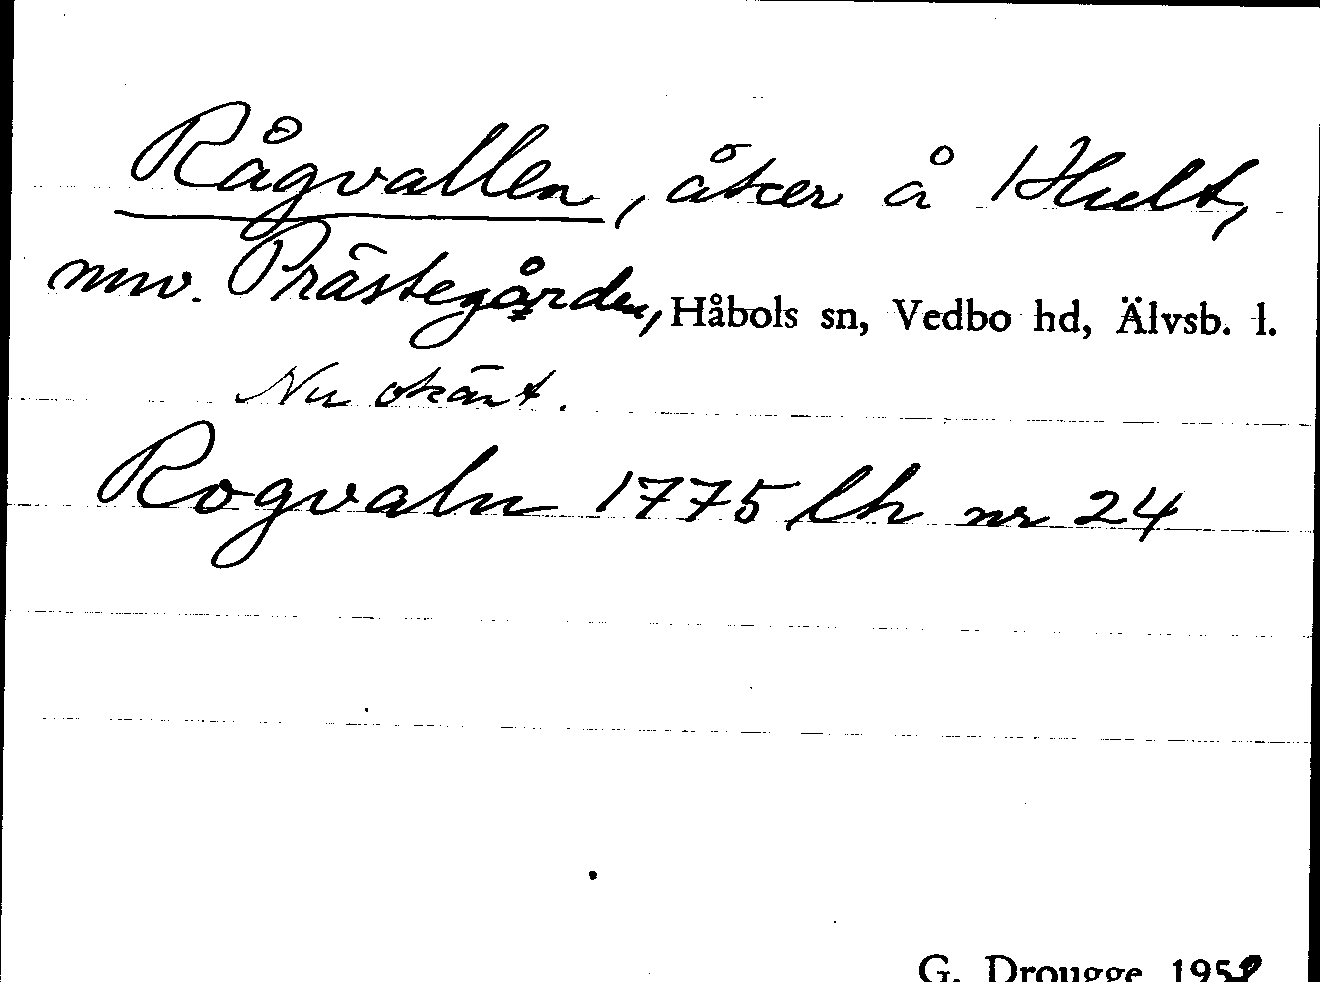 Rågvallen, åker å Hult,
nuv. Prästegården, Håbols sn, Vedbo hd, Älvsb. l.
Nu okänt.
Rogvaln 1775 lh nr 24
G. Drougge 1959